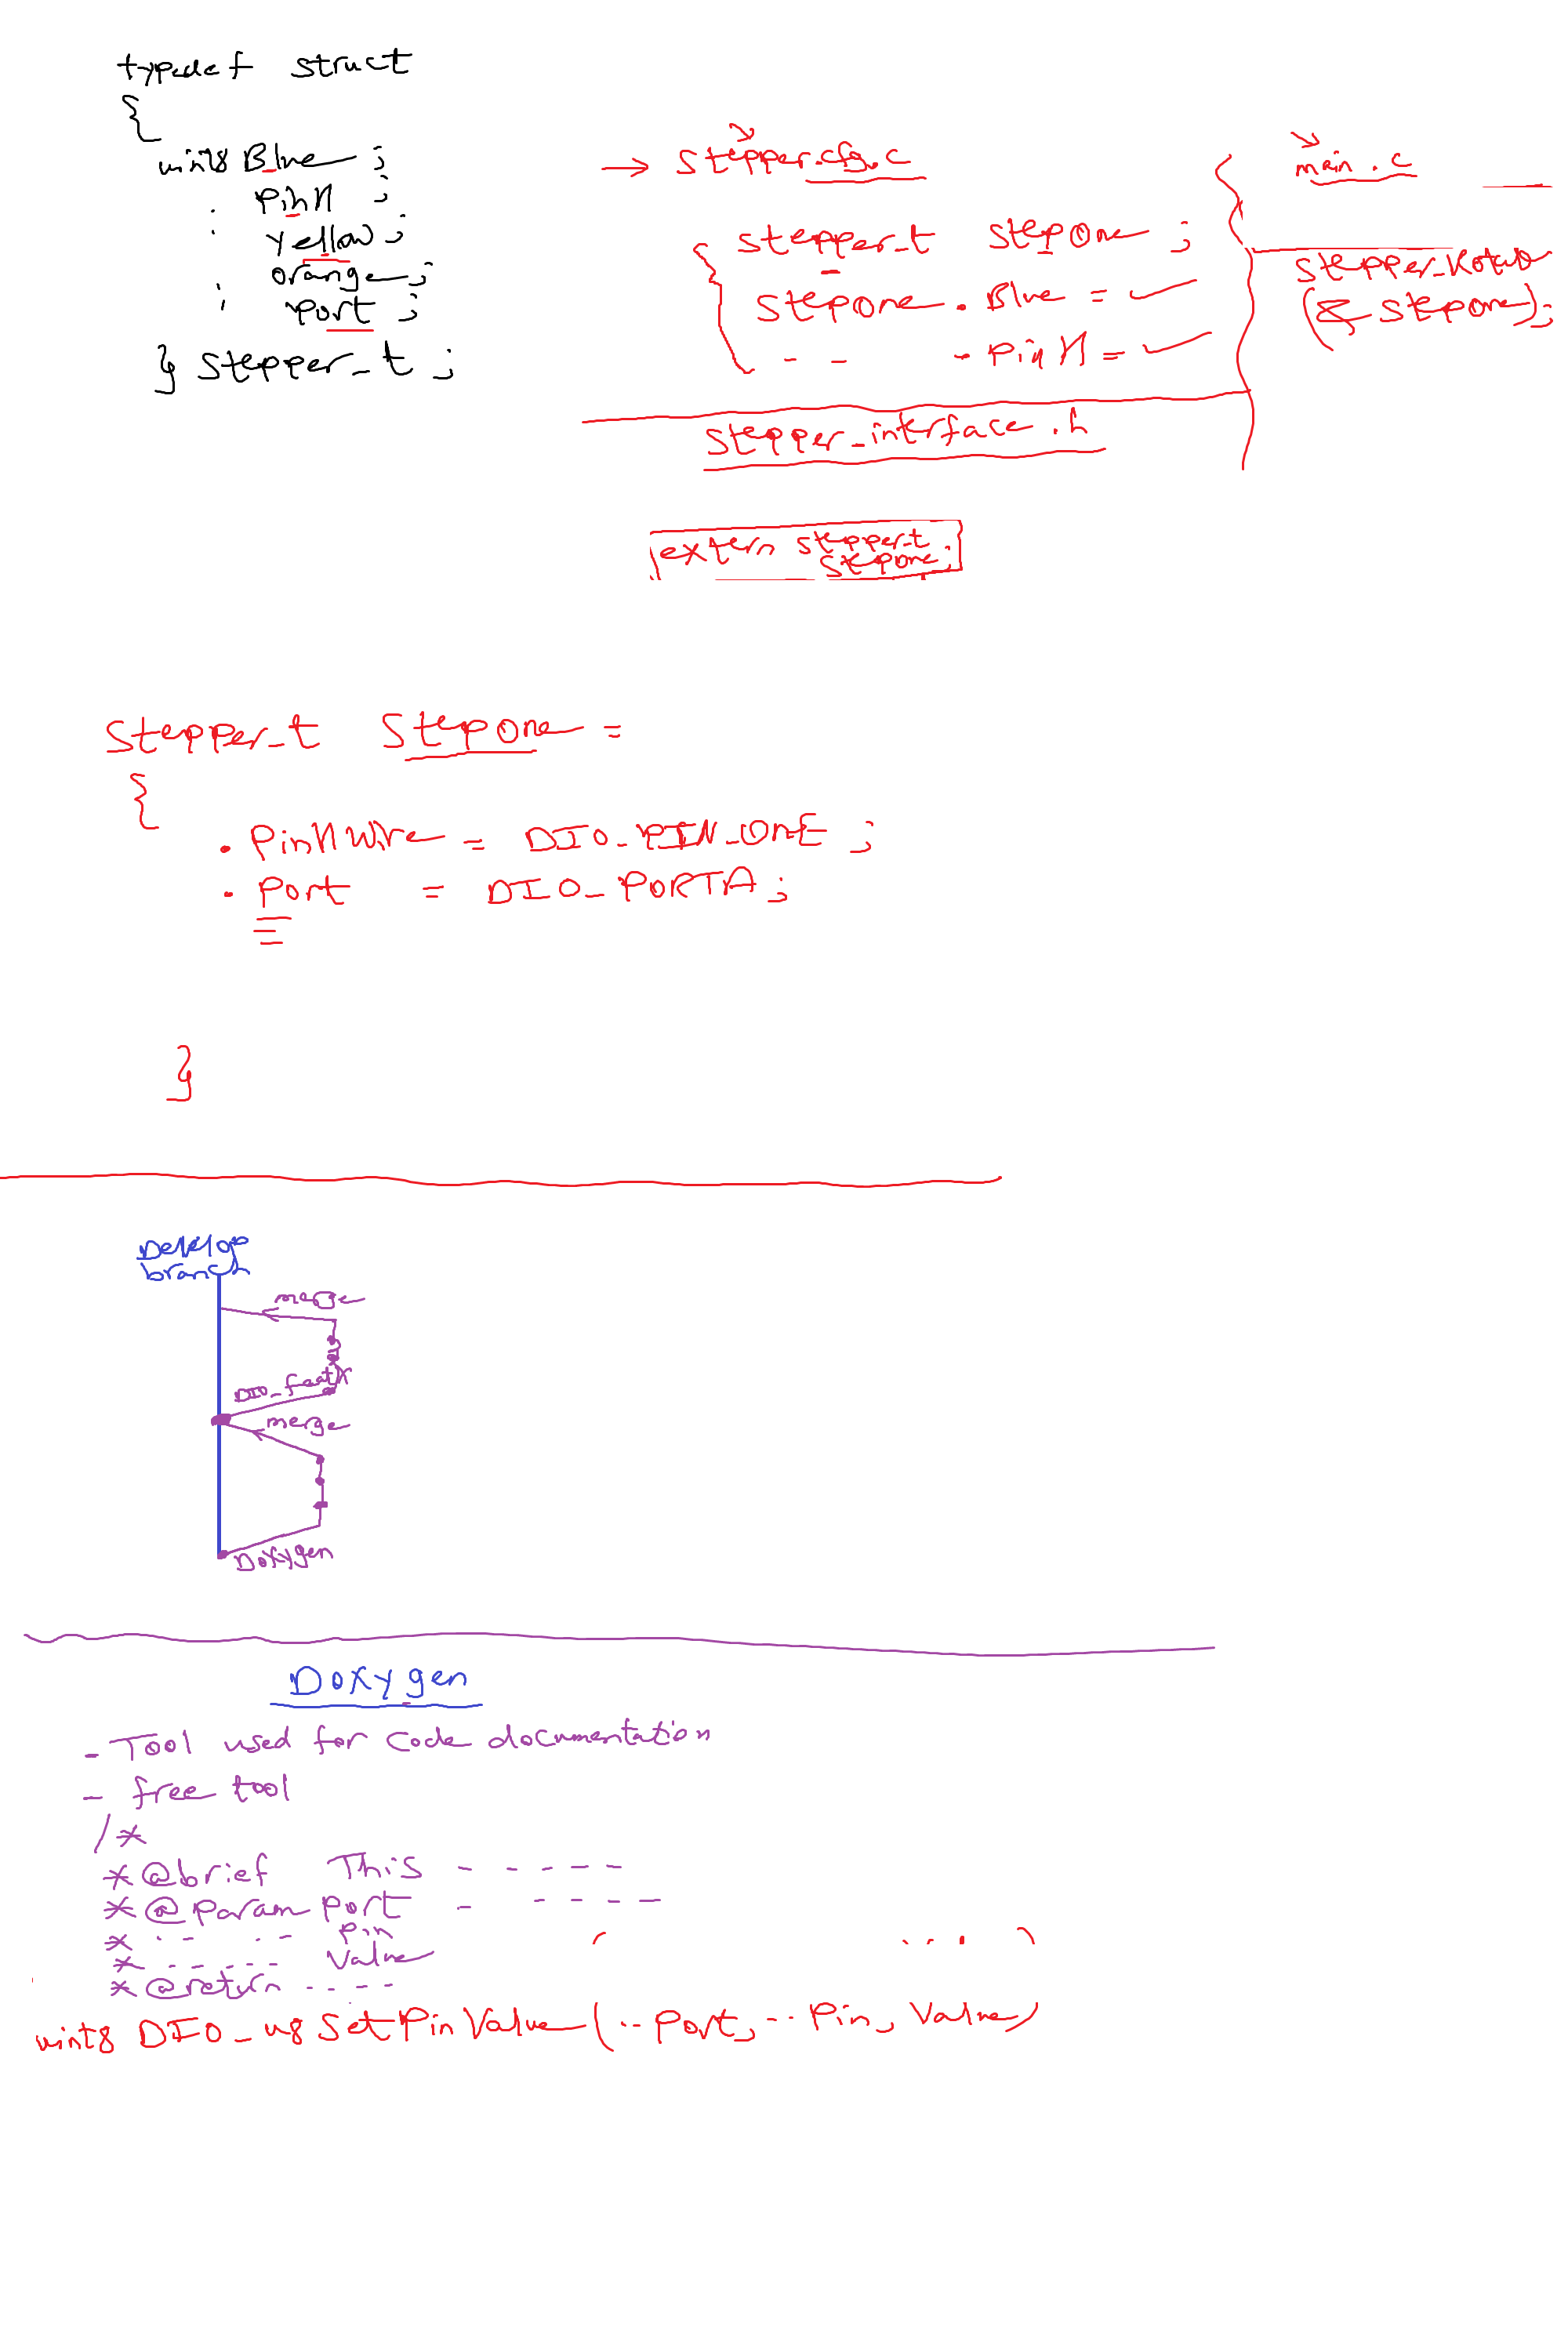 typedef struct
{
uint8 Blue ;
: Pink ;
yellow ;
: orange ;
Port ;
} stepper_t ;
→ stepper_cfg.c
stepper_t stepone ;
stepone . Blue = ✓
- - - Pink = ✓
main.c
(& stepone);
stepper_interface.h
extern stepper_t
stepone;
Stepper_t Stepone =
{
. PinkWire = DIO_PIN_ONE ;
. Port = DIO_PORTA ;
}
Develop
branch
merge
merge
Doxygen
Doxygen
- Tool used for code documentation
- free tool
/*
*@brief This - - - - -
*@param port - - - - -
* - - - - Pin
* - - - - - Value
*@return - - - -
uint8 DIO_u8SetPinValue(.. Port, .. Pin, Value)